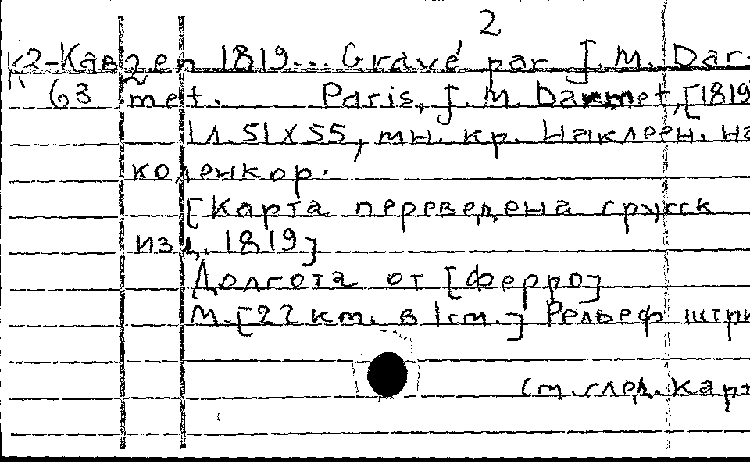 2
К2-Кав en 1819... Gravé par J. M. Dar-
63 met. Paris, J. M. Darmet, [1819
1л. 51x55, мн. кр. Наклеен. на
коленкор.
[Карта переведена с русск
изд. 1819]
Долгота от [ферро]
М. [22 км. в 1см.] Рельеф штри
См. след. карт